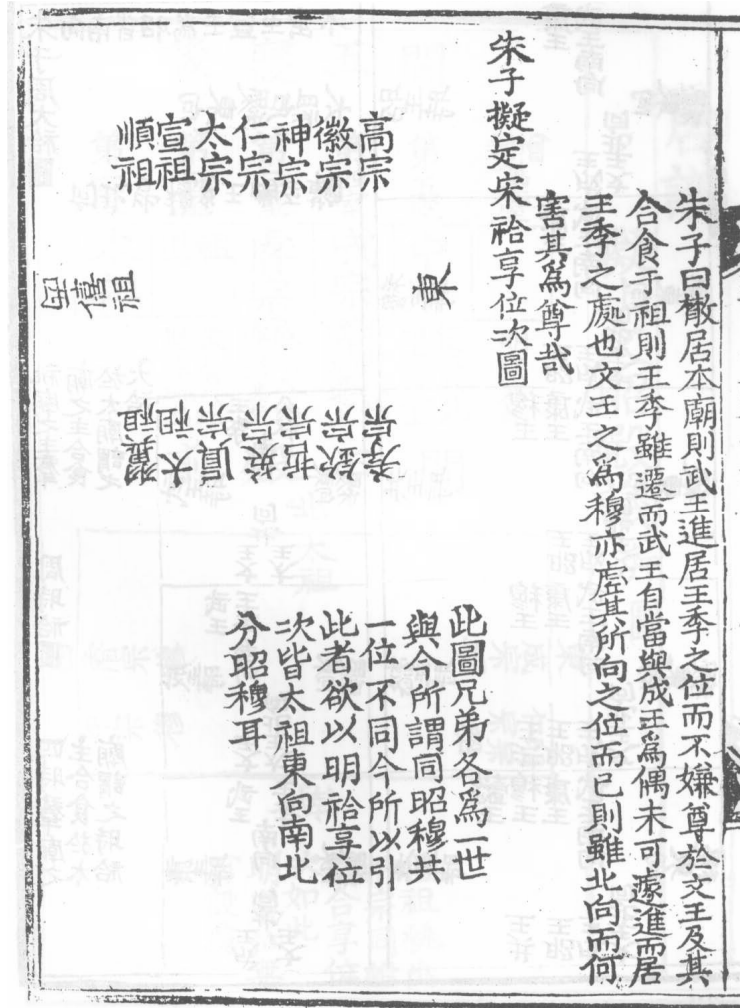 朱子曰居本廟則武王進居王季之位而不嫌尊於文王及其
合食于祖則王季雖遷而武王自當與成王爲偶未可遽進而居
王季之處也文王之爲穆亦虛其所向之位而已則雖北向而何
害其爲尊哉
朱子擬定宋祫享位次圖
高宗
徽宗
神宗
仁宗
太宗
宣祖
順祖
東
僖祖
孝宗
欽宗
哲宗
英宗
眞宗
太祖
翼祖
此圖兄弟各爲一世
與今所謂同昭穆共
一位不同今所以引
此者欲以明祫享位
次皆太祖東向南北
分昭穆耳